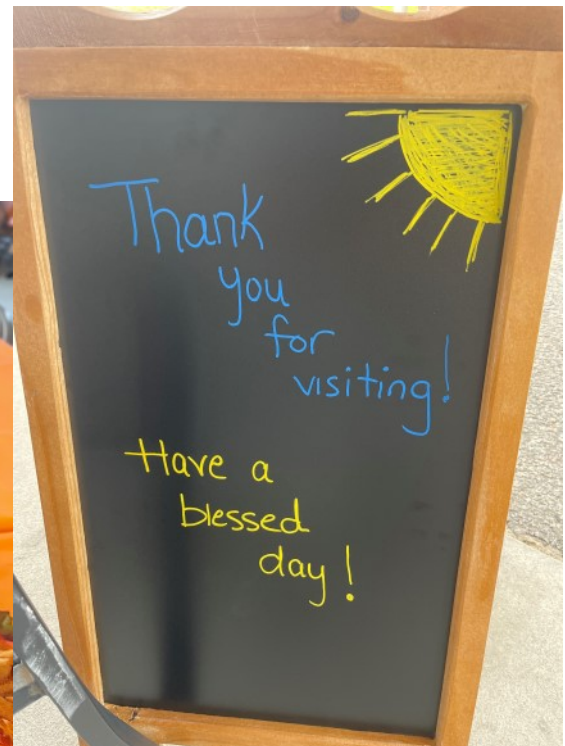 Thank
you
for
visiting!
Have a
blessed
day!